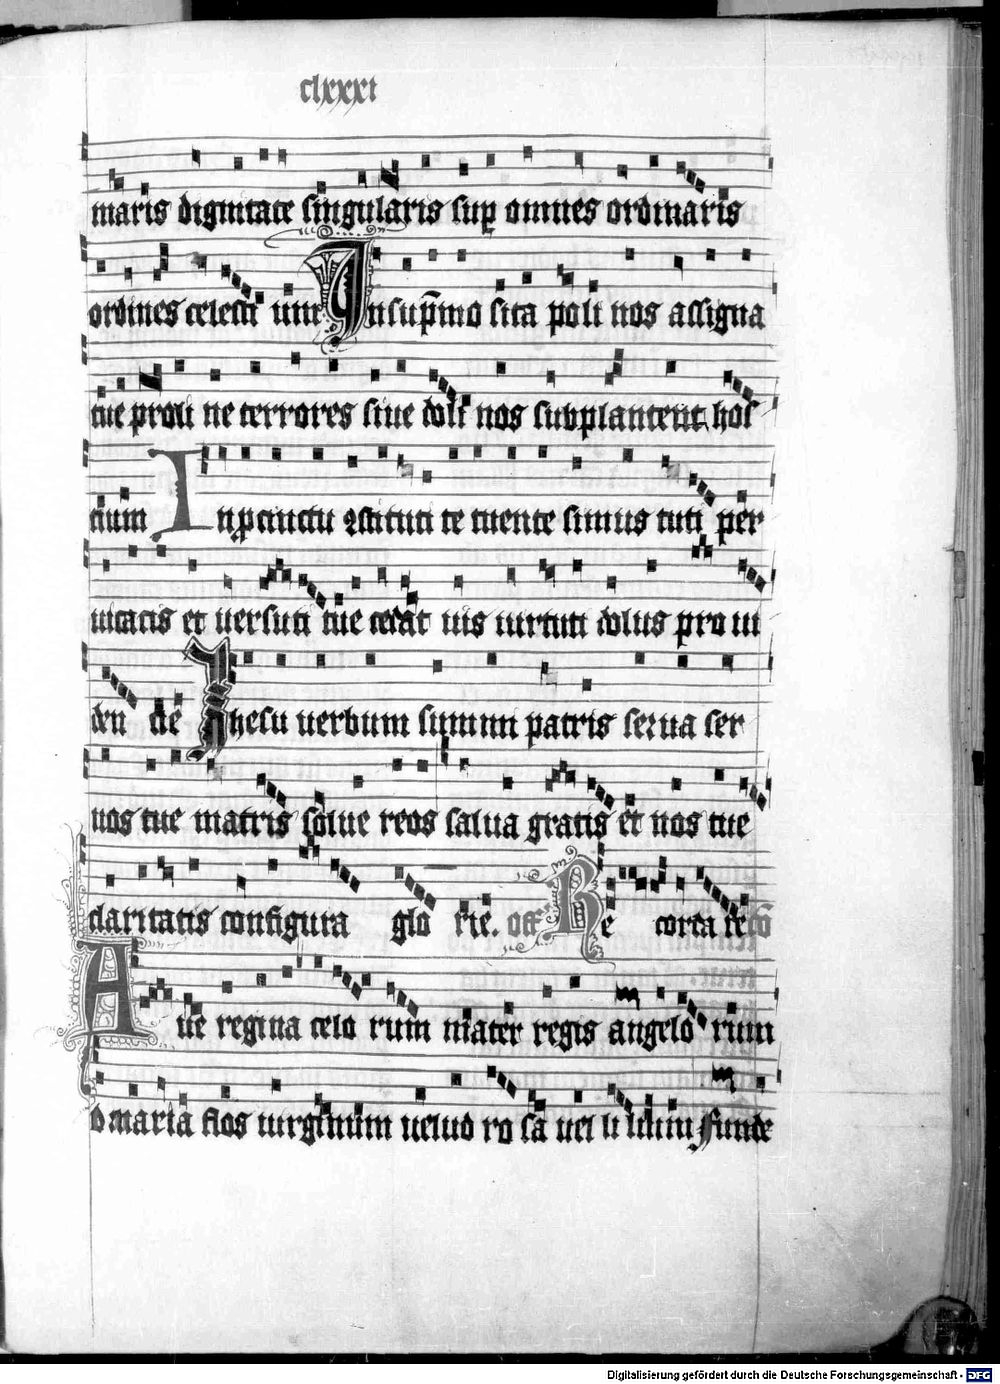 clxxxi
maris dignitate singularis sup omnes ordinaris
ordines celesti um In sup̄mo sita poli nos assigna
tue proli ne terrores siue doli nos subplantent hos
tium In p̄cinctu ꝯstituti te tuente simus tuti per
uicacis et uersuti tue cedat uis uirtuti dolus pro ui
den cie Ihesu uerbum summi patris serua ser
uos tue matris solue reos salua gratis et nos tue
claritatis configura glo rie. off Re corda re
Aue regina celo rum mater regis angelo rum
o maria flos uirginum uelud ro sa uel li lium funde
Digitalisierung gefördert durch die Deutsche Forschungsgemeinschaft - DFG